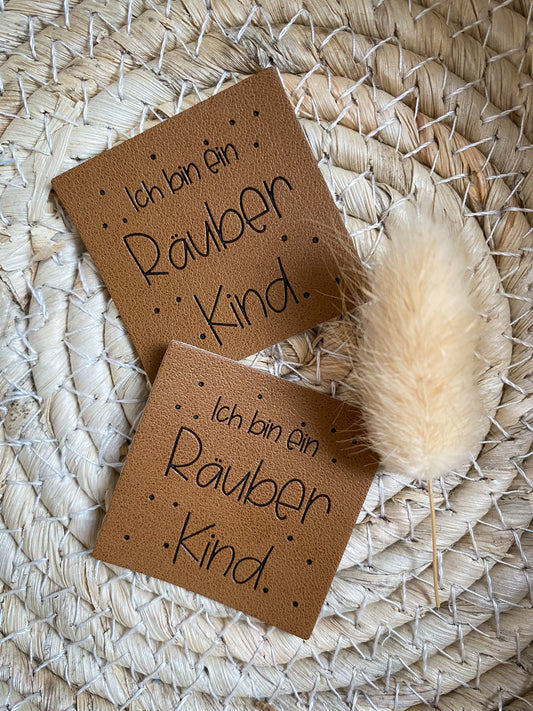 Ich bin ein
Räuber
Kind.
Ich bin ein
Räuber
Kind.